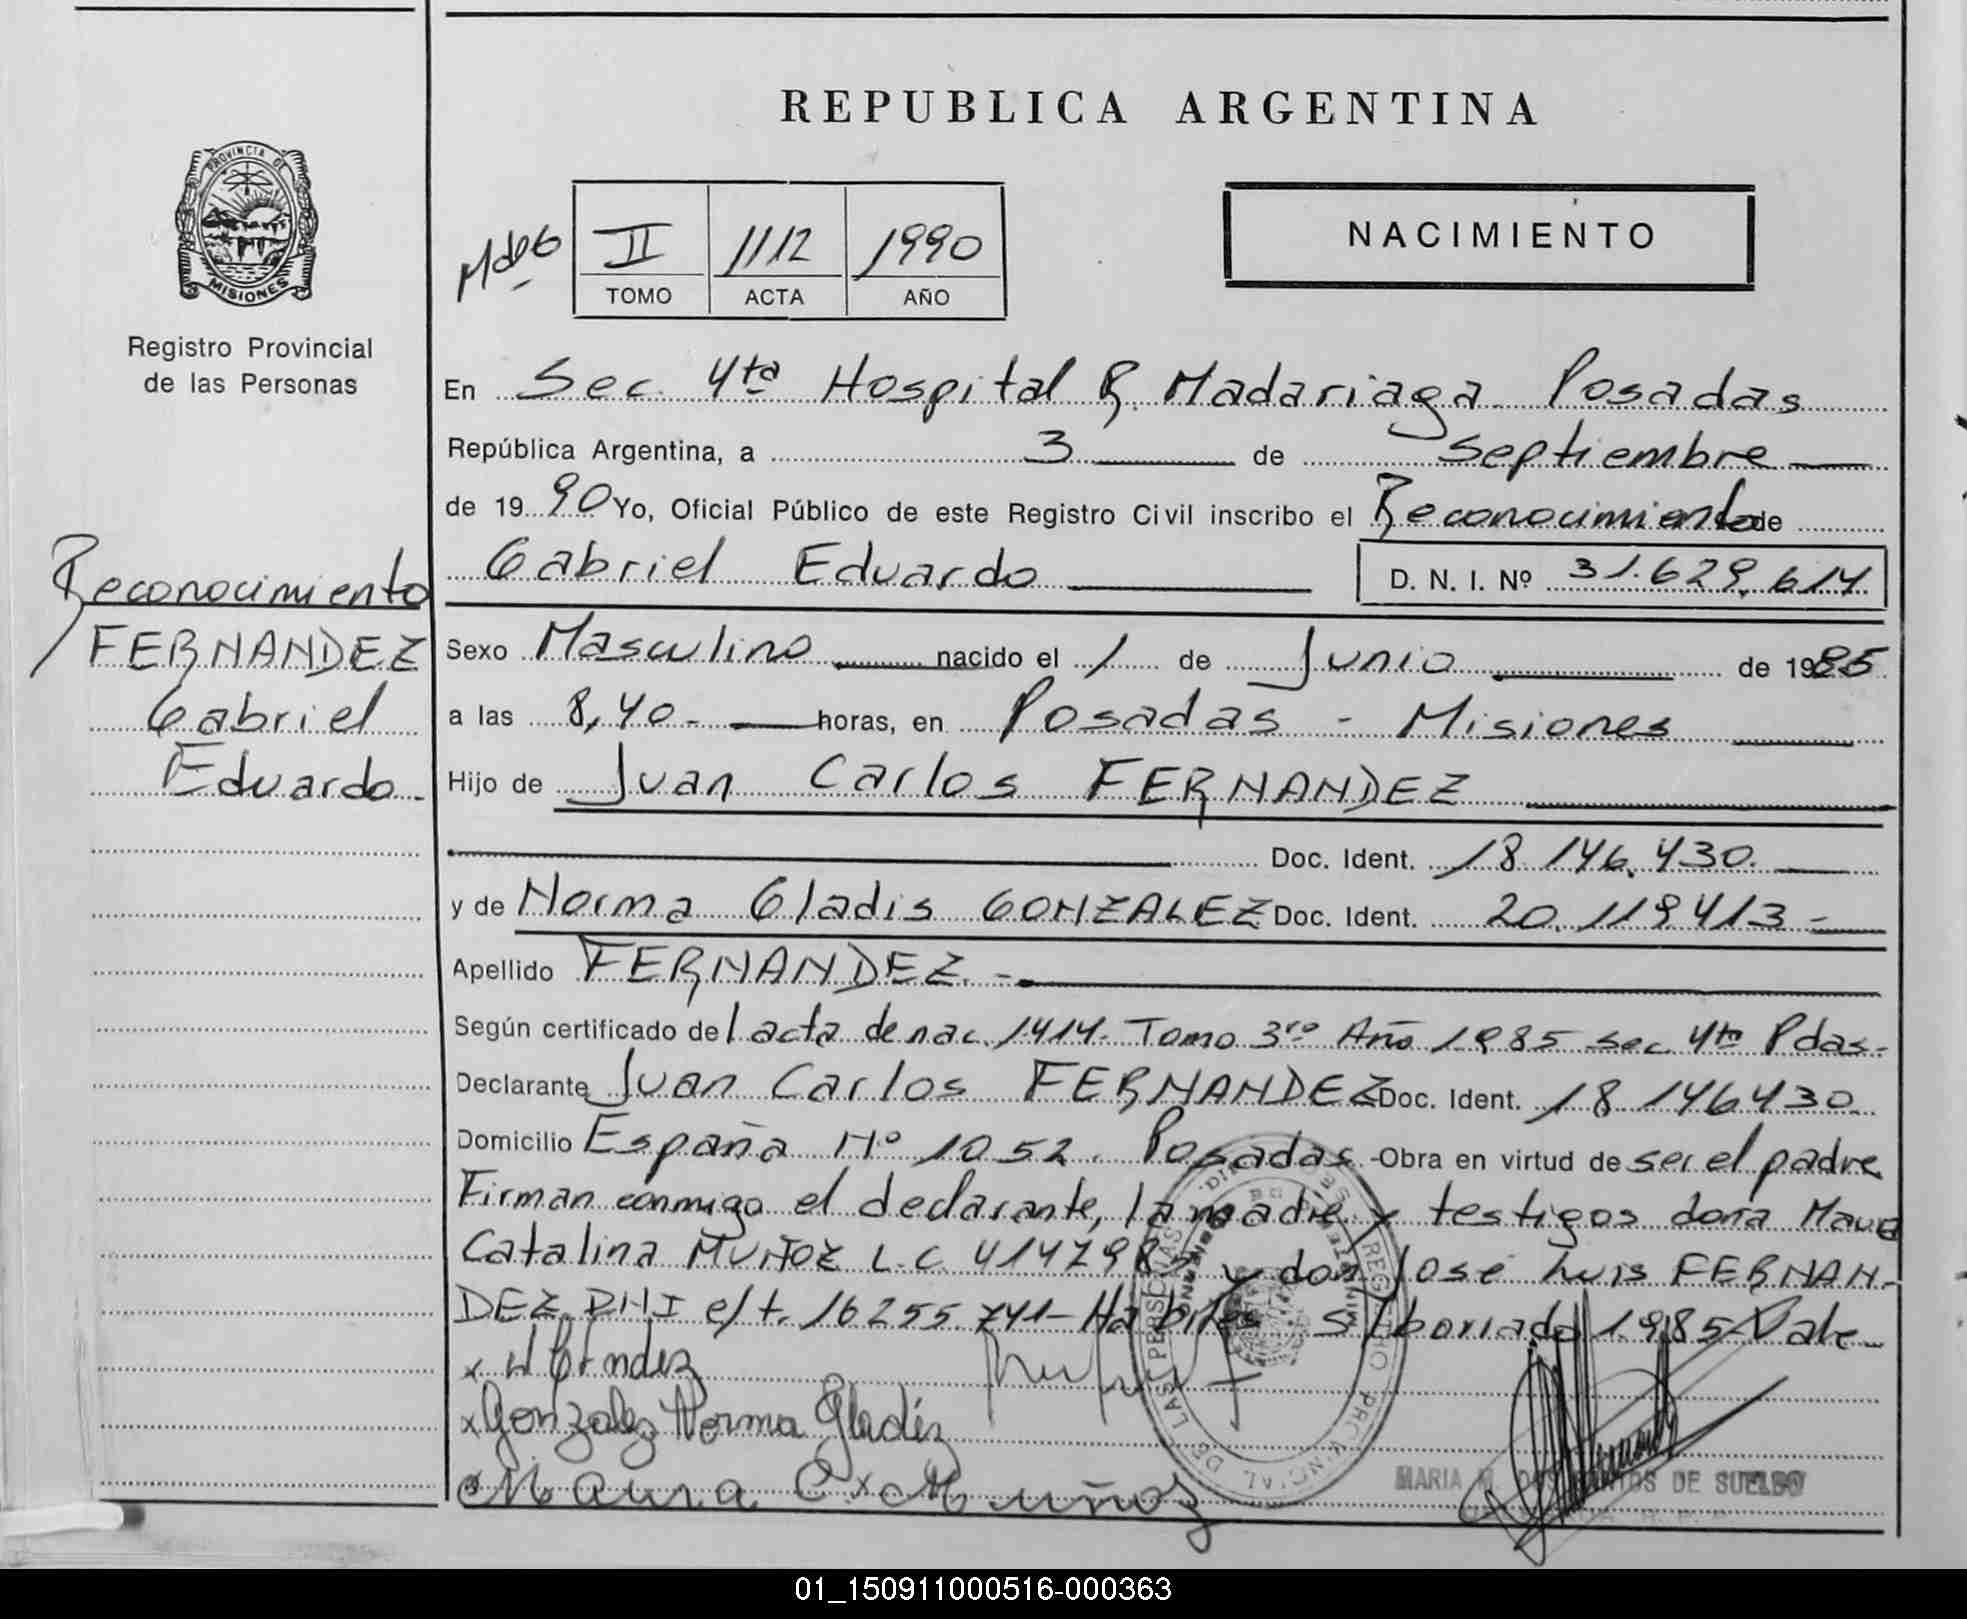 REPUBLICA ARGENTINA
PROVINCIA DE
MISIONES
Registro Provincial
de las Personas
II 1112 1990
TOMO ACTA AÑO
NACIMIENTO
En Sec. 4ta Hospital R. Madariaga Posadas
República Argentina, a 3 de septiembre
de 1990 Yo, Oficial Público de este Registro Civil inscribo el Reconocimiento de
Gabriel Eduardo D. N. I. Nº 31.629.614
Reconocimiento
FERNANDEZ
Gabriel
Eduardo.
Sexo Masculino nacido el 1 de Junio de 1985
a las 8,40- horas, en Posadas - Misiones
Hijo de Juan Carlos FERNANDEZ
Doc. Ident. 18.146.430.
y de Norma Gladis GONZALEZ Doc. Ident. 20.119.413-
Apellido FERNANDEZ.-
Según certificado del acta de nac. 1414- Tomo 3ro Año 1985 sec 4ta Pdas-
Declarante Juan Carlos FERNANDEZ Doc. Ident. 18 146430.
Domicilio España Nº 1052. Posadas.- Obra en virtud de ser el padre
Firman conmigo el declarante, la madre y testigos doña Maura
Catalina MUÑOZ L.C. y don José Luis FERNAN-
DEZ DNI e/t. 16255741- Habiles S/borrado 1985-Vale-
x
x Gonzalez Norma Gladiz
x Maura C x Muñoz
REGISTRO PROVINCIAL DE LAS PERSONAS
MARIA M. DOS SANTOS DE SUELDO
01_150911000516-000363